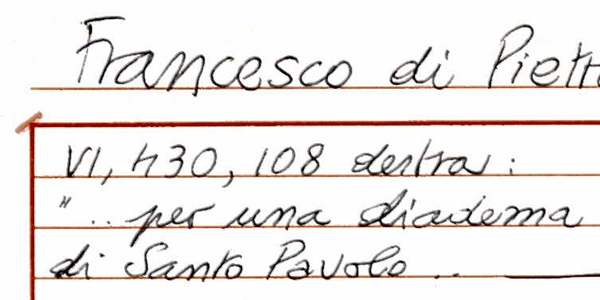 Francesco di Pietr
VI, 430, 108 destra:
".. per una diadema
di Santo Pavolo ..